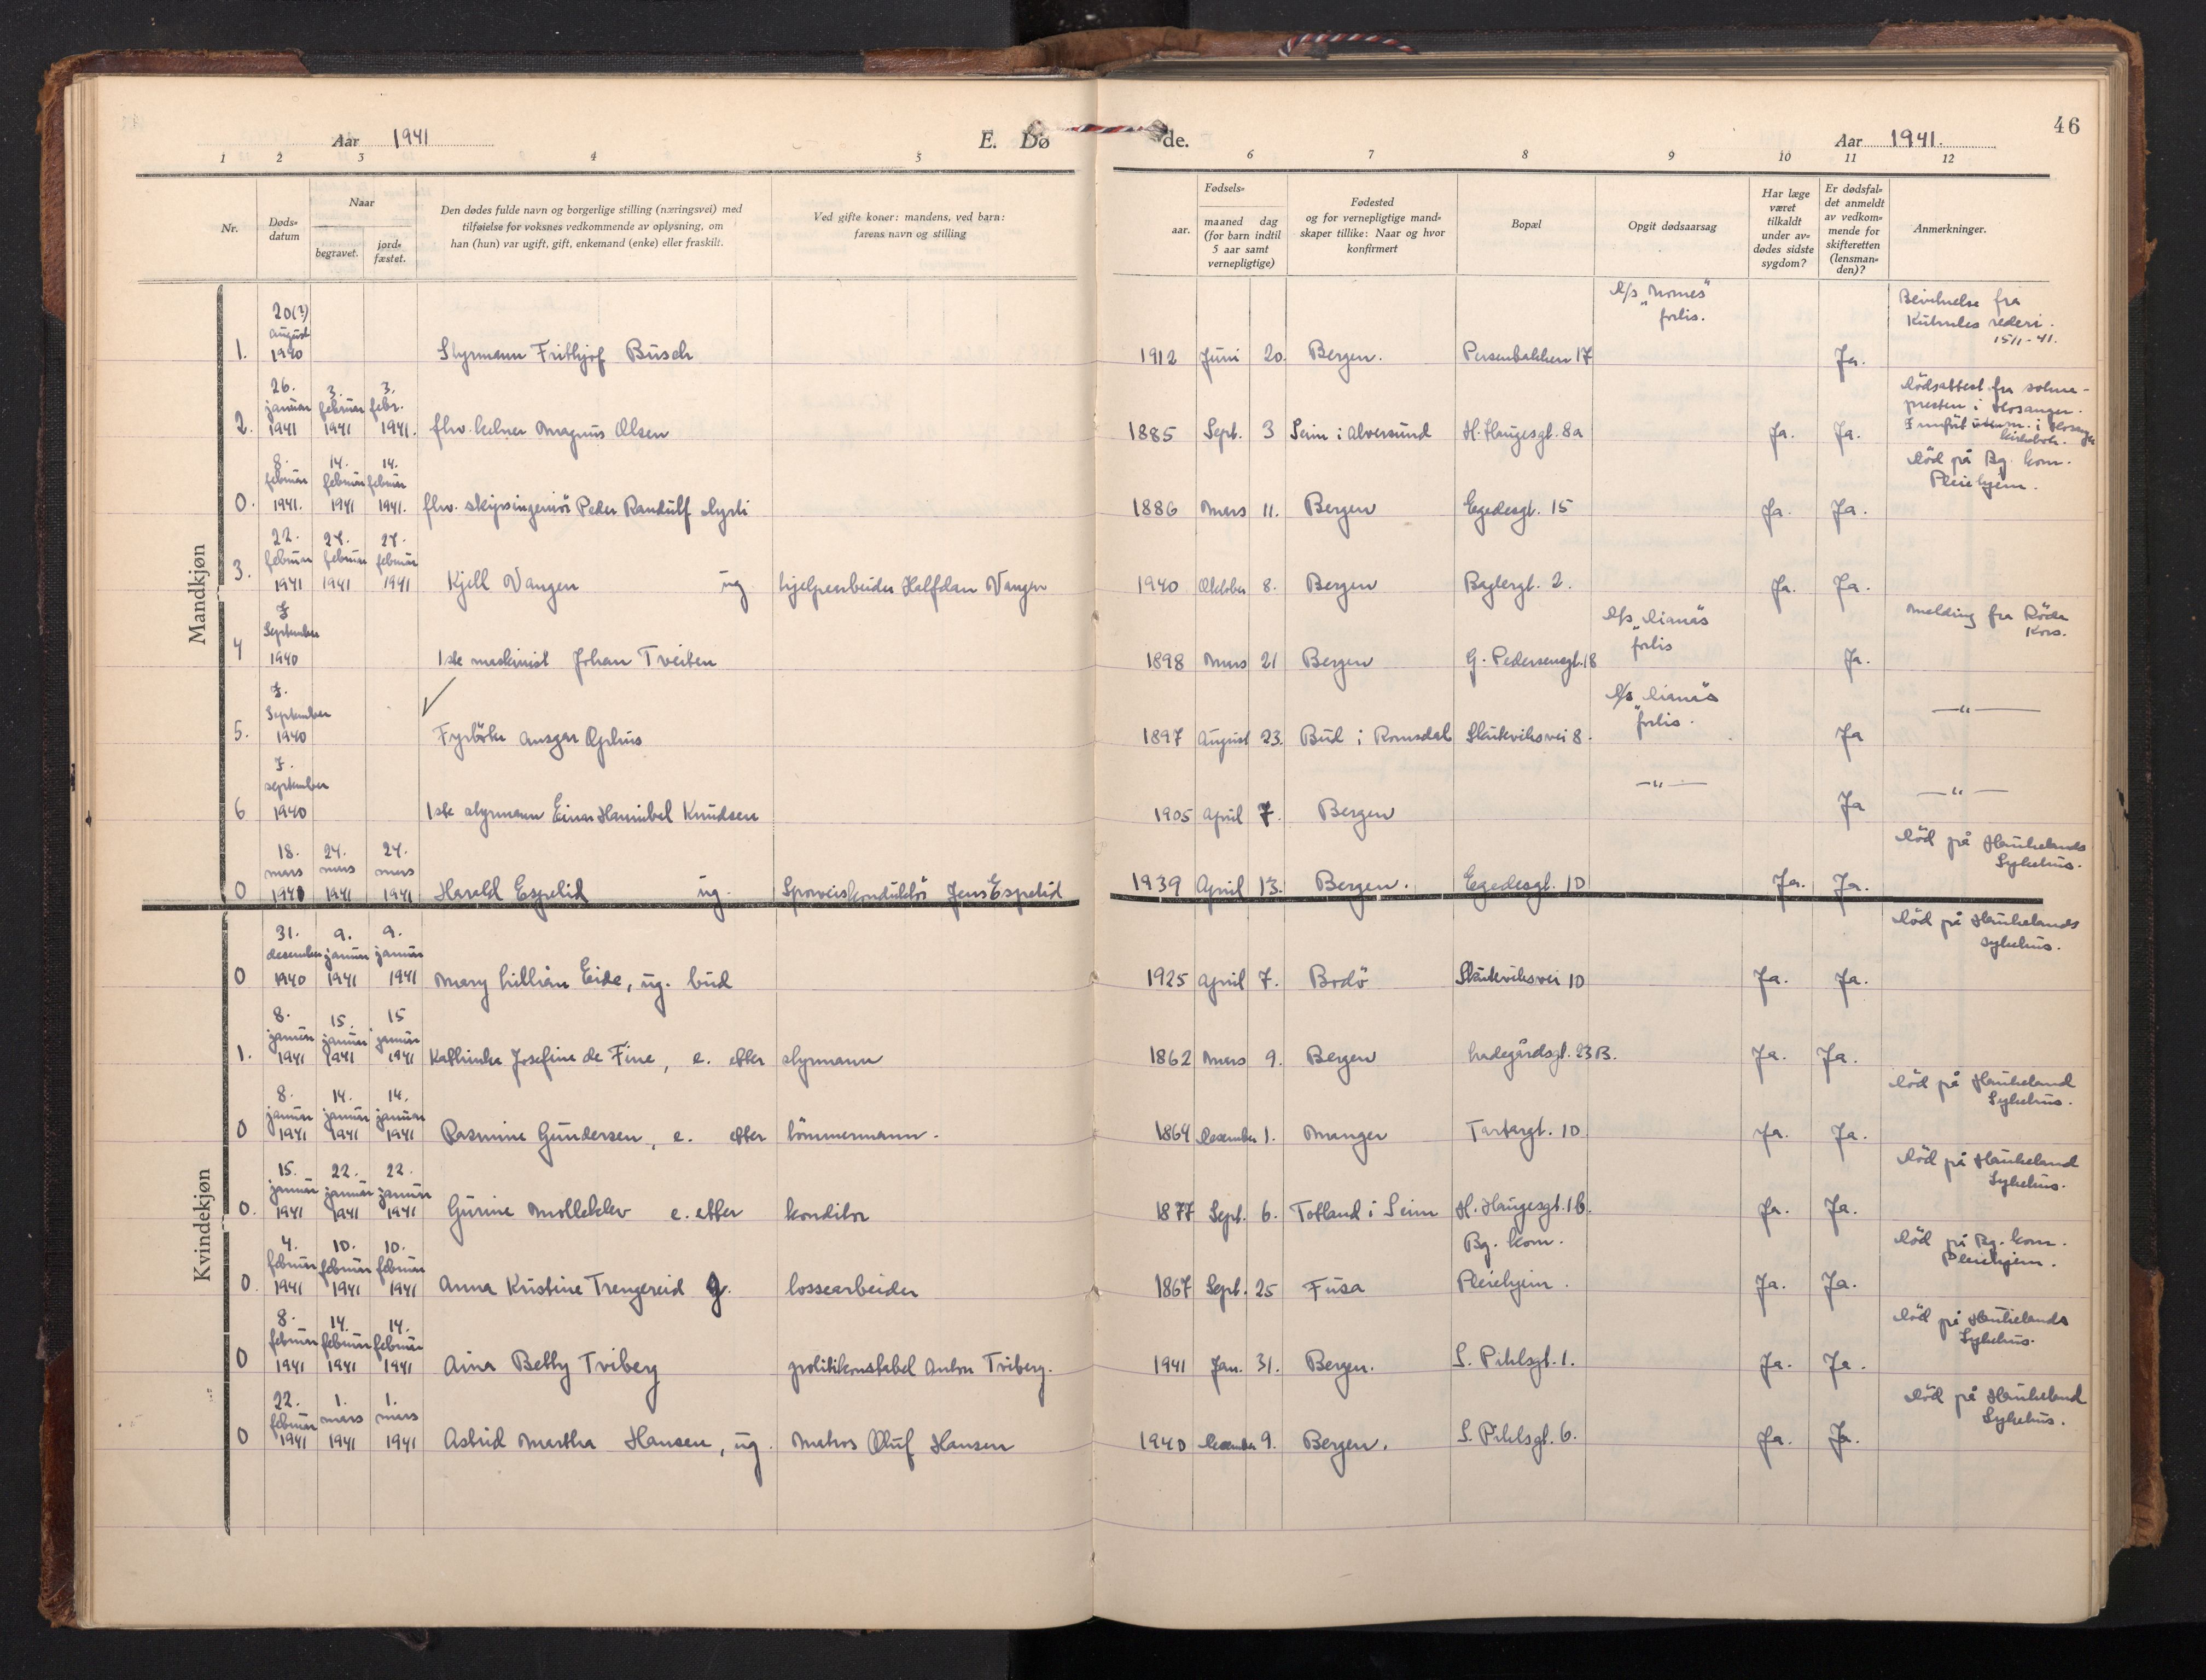 46
Aar 1941
E. Dø
de.
Aar 1941.
1 2 3 4 5 6 7 8 9 10 11 12
Nr.
Døds-
datum
Naar
begravet.
jord-
fæstet.
Den dødes fulde navn og borgerlige stilling (næringsvei) med
tilføielse for voksnes vedkommende av oplysning, om
han (hun) var ugift, gift, enkemand (enke) eller fraskilt.
Ved gifte koner: mandens, ved barn:
farens navn og stilling
Fødsels-
aar.
maaned dag
(for barn indtil
5 aar samt
vernepligtige)
Fødested
og for vernepligtige mand-
skaper tillike: Naar og hvor
konfirmert
Bopæl
Opgit dødsaarsag
Har læge
været
tilkaldt
under av-
dødes sidste
sygdom?
Er dødsfal-
det anmeldt
av vedkom-
mende for
skifteretten
(lensman-
den)?
Anmerkninger.
Mandkjøn
1. 20(?) august 1940 Styrmann Frithjof Busch 1912 Juni 20. Bergen. Persenbakken 17 forlis. Ja. fra rederi. 15/1-41.
2. 26. januar 1941 3. februar 1941 3. febr. 1941. fhv. kelner Magnus Olsen 1885 Sept. 3 Seim i Alversund H. Haugesgt. 8a Ja. Ja. Dödsattest fra sokne-
presten i Hosanger.
0. 8. februar 1941. 14. februar 1941 14. februar 1941. fhv. skipsingeniör Peder Randulf 1886 Mars 11. Bergen Egedesgt. 15 Ja. Ja. Död på Bg. kom.
Pleiehjem.
3. 22. februar 1941 27. februar 1941 27. februar 1941 Kjell Vangen ug hjelpearbeider Halfdan Vangen 1940 Oktober 8. Bergen Baglergt. 2. Ja. Ja.
4 7 September 1940 1ste maskinist Johan Tveiten 1898 Mars 21 Bergen G. Pedersensgt. 18 forlis Ja. Melding fra Röde
Kors.
5. 7. September 1940 Fyrböter Ansgar Ophus 1897 August 23. Bud i Romsdal Skuteviksvei 8. forlis. Ja —"—
6 7. september 1940 1ste styrmann Einar Hannibal Knudsen 1905 April 7. Bergen —"— Ja —"—
0 18. mars 1941 24. mars 1941 24. mars 1941 Harald Espelid ug. Sporveiskonduktör Jens Espelid 1939 April 13. Bergen. Egedesgt. 10 Ja. Ja. Död på Haukelands
Sykehus.
Kvindekjøn
0 31. desember 1940 9. januar 1941 9. januar 1941 Mary Lillian Eide, ug. bud 1925 April 7. Bodö Skuteviksvei 10 Ja. Ja. Död på Haukelands
sykehus.
1. 8. januar 1941 15. januar 1941 15 januar 1941 Kathinka Josefine de Fine, e. efter styrmann 1862 Mars 9. Bergen Ladegårdsgt. 23 B. Ja. Ja.
0 8. januar 1941 14. januar 1941 14. januar 1941 Rasmine Gundersen, e. efter tömmermann. 1864 Desember 1. Manger Tartargt. 10 Ja. Ja. Död på Haukeland
Sykehus.
0. 15. januar 1941 22. januar 1941 22. januar 1941 Gurine e. efter konditor 1877 Sept. 6. Totland i Seim H. Haugesgt. 16. Ja. Ja. Död på Haukeland
Sykehus.
0. 4. februar 1941 10. februar 1941 10. februar 1941 Anna Kristine Trengereid g. lossearbeider 1867 Sept. 25 Fusa Bg. kom.
Pleiehjem. Ja. Ja. Död på Bg. kom.
Pleiehjem.
0 8. februar 1941 14. februar 1941 14. februar 1941 Aina Betty Triberg politikonstabel Anton Triberg. 1941 Jan. 31. Bergen. S. Pihlsgt. 1. Ja. Ja. Död på Haukelands
Sykehus.
0 22. februar 1941 1. mars 1941 1. mars 1941 Astrid Martha Hansen, ug. Matros Oluf Hansen 1940 Desember 9. Bergen. S. Pihlsgt. 6. Ja. Ja. Död på Haukeland
Sykehus.